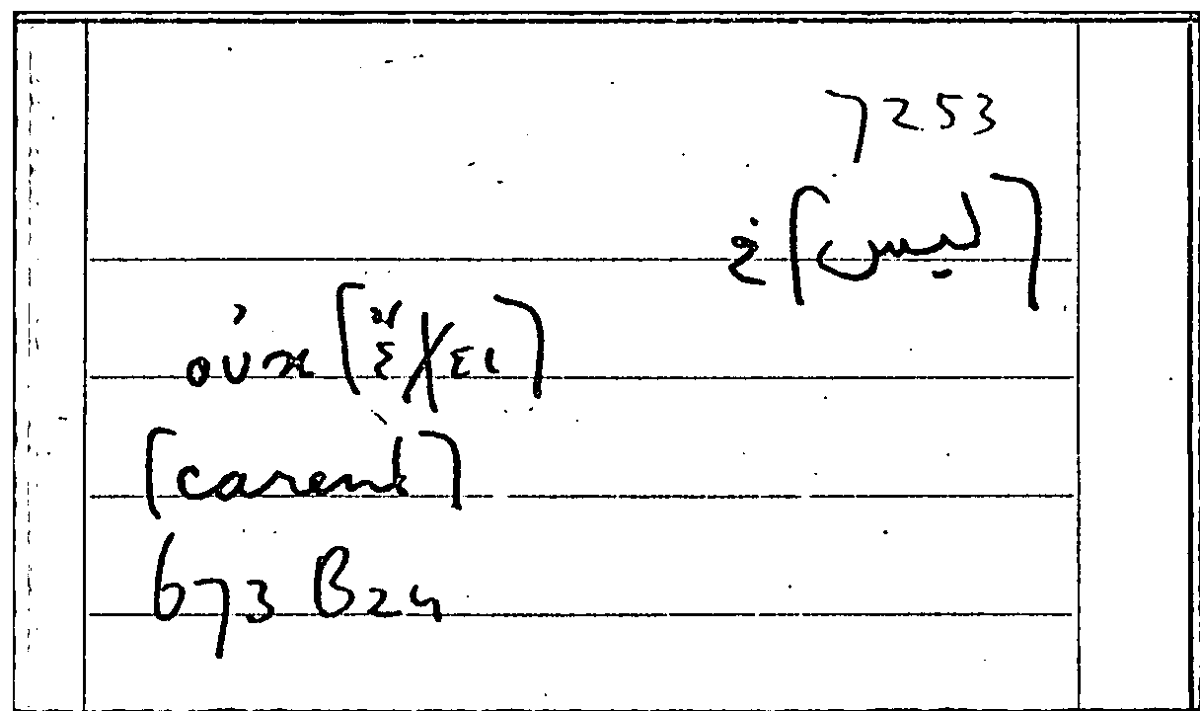 7253
[ليس] غ
οὐκ [ἔχει]
[carent]
673 B24